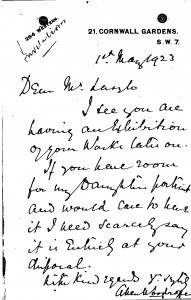 21. CORNWALL GARDENS.
S.W.7.
1st May 1923
Dear Mr Laszlo
I see you are
having an Exhibition
of your Works later on.
If you have room
for my Daughter's portrait
and would care to have
it I need scarcely say
it is Entirely at your
disposal.
With kind regards Yrs